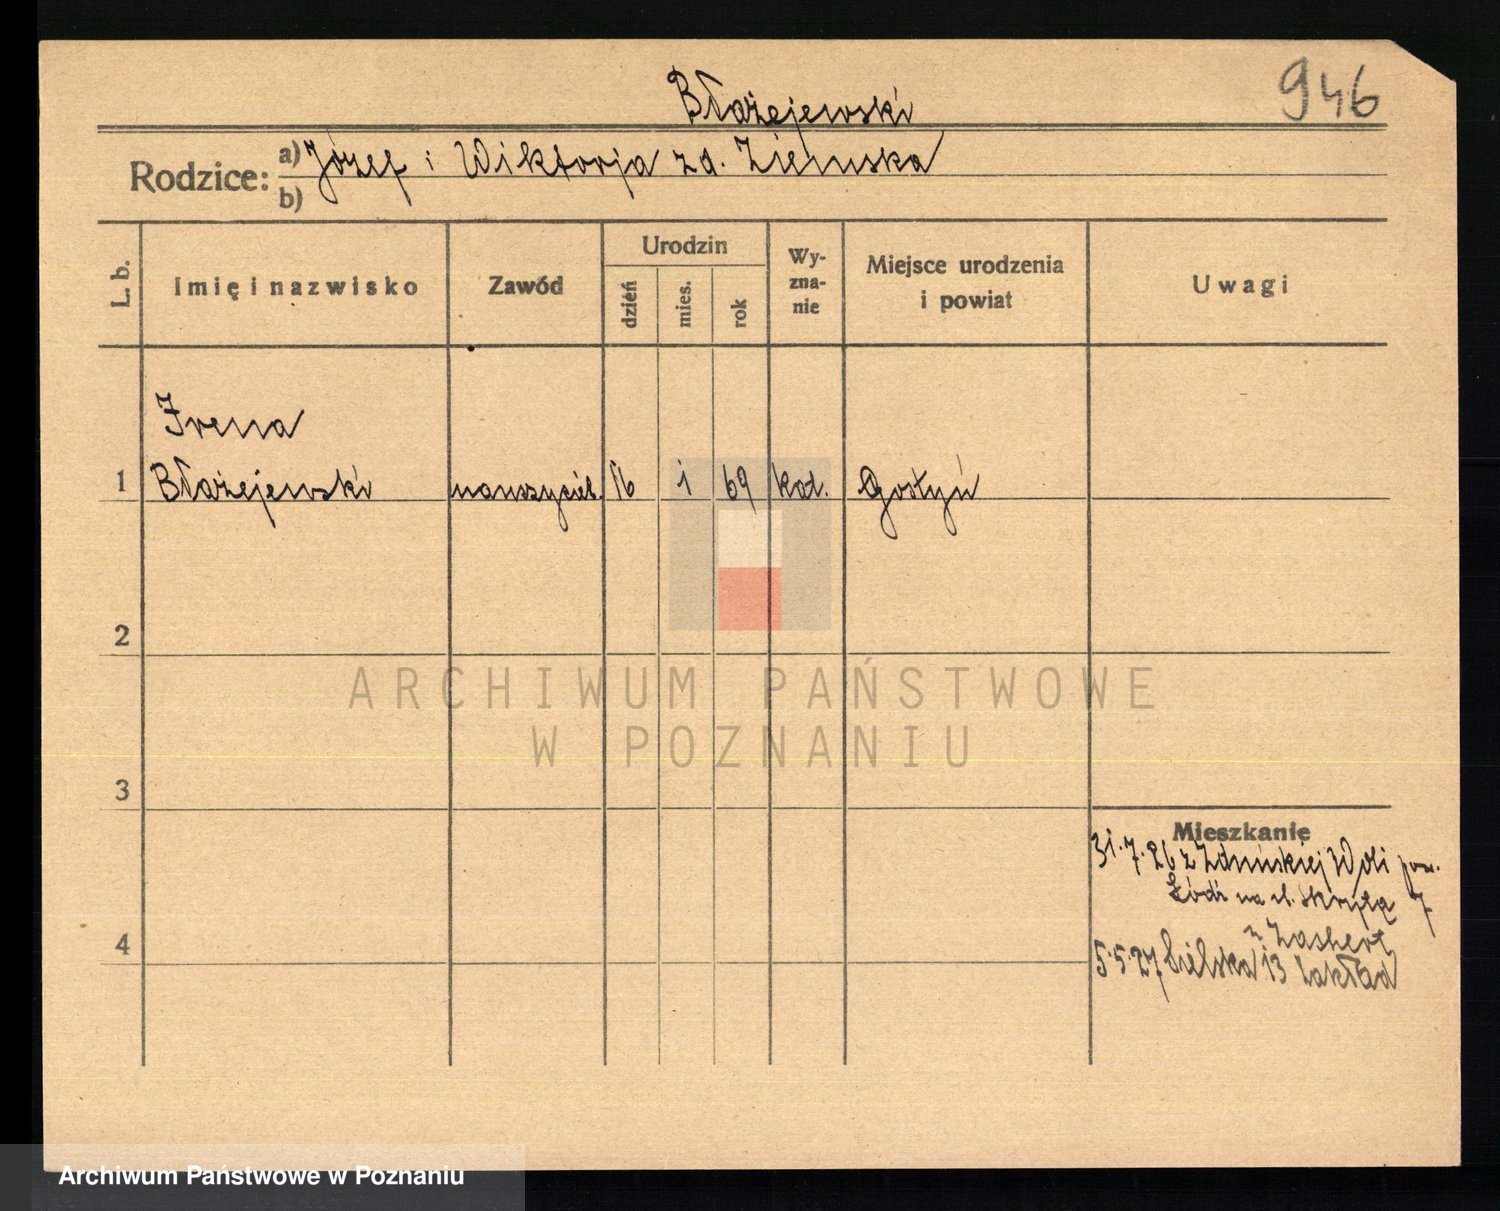 946
Błażejewski
Rodzice: a) Józef i Wiktorja zd. Ziemska
b)
L. b. Imię i nazwisko Zawód Urodzin dzień mies. rok Wy-zna-nie Miejsce urodzenia i powiat Uwagi
Irena
1 Błażejewski nauczyciel. 16 1 69 kat. Gostyń
2
ARCHIWUM PAŃSTWOWE
W POZNANIU
3
Mieszkanie
31.7.26 z Zduńskiej Woli pow.
Łódź na ul. Skrytą 7
z Zashert
5.5.27 Bielska 13 Zakład
4
Archiwum Państwowe w Poznaniu